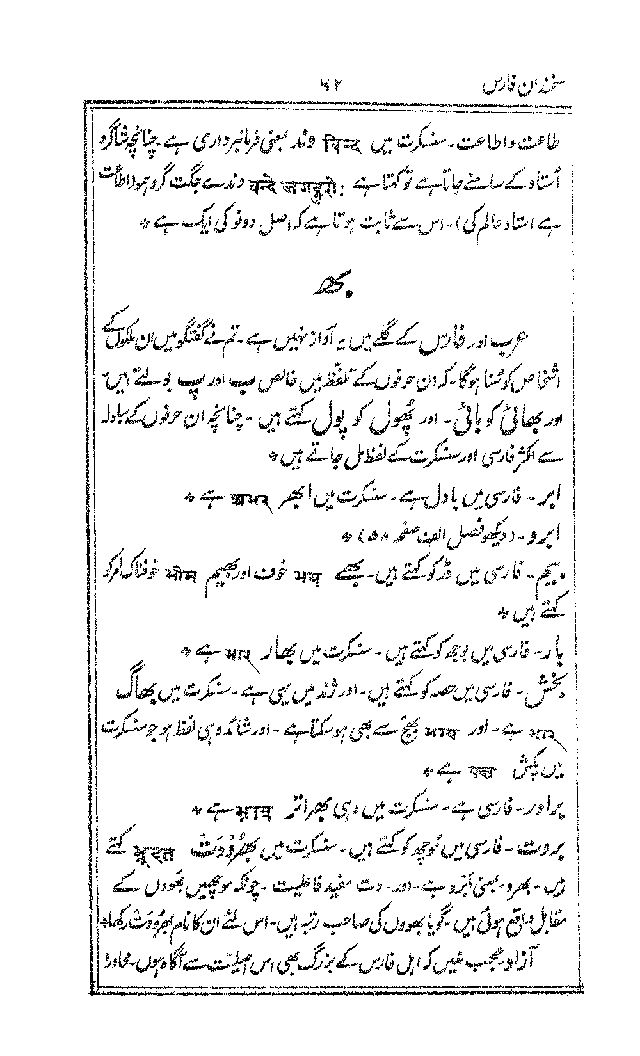 سخندان فارس ۶۲
طاعت و اطاعت ۔ سنسکرت میں وند विन्द بمعنی فرمانبرداری ہے چنانچہ شاگرد
اُستاد کے سامنے جاتا ہے تو کہتا ہے वन्दे जगद्गुरो: وندے جگت گرو ہو (اطاعت
ہے استاد عالم کی) ۔ اس سے ثابت ہوتا ہے کہ اصل دونو کی ایک ہے *
بھ
عرب اور فارس کے گلے میں یہ آواز نہیں ہے ۔ تم نے گفتگو میں ان ملکوں کے
اشخاص کو سُنا ہوگا ۔ کہ ان حرفوں کے تلفظ میں خالص ب اور پ بولتے ہیں ۔
اور بھائی کو بائی ۔ اور پھُول کو پول کہتے ہیں ۔ چنانچہ ان حرفوں کے مبادلہ
سے اکثر فارسی اور سنسکرت کے لفظ مل جاتے ہیں *
ابر ۔ فارسی میں بادل ہے ۔ سنسکرت میں ابھر अभर ہے *
ابرو ۔ (دیکھو فصل الف صفحہ ۵۸) *
بیم ۔ فارسی میں ڈر کو کہتے ہیں ۔ بھے भय خوف اور بھیم भीम خوفناک امر کو
کہتے ہیں *
بار ۔ فارسی میں بوجھ کو کہتے ہیں ۔ سنسکرت میں بھار भार ہے *
بخش ۔ فارسی میں حصہ کو کہتے ہیں ۔ اور ژند میں یہی ہے ۔ سنسکرت میں بھاگ
भाग ہے ۔ اور سے بھی ہوسکتا ہے ۔ اور شائد وہی لفظ ہو جو سنسکرت
میں پکش पक्ष ہے *
برادر ۔ فارسی ہے ۔ سنسکرت میں وہی بھراتر ہے *
بروت ۔ فارسی میں مُوچھ کو کہتے ہیں ۔ سنسکرت میں بھرُووَت भ्रूवत کہتے
ہیں ۔ بھرو ۔ بمعنی اَبرُو ہے ۔ اور ۔ وت مفید فاعلیت ۔ چونکہ موچھیں بھووں کے
مقابل واقع ہوئی ہیں ۔ گویا بھووں کی صاحب رتبہ ہیں ۔ اس لئے ان کا نام بھرُووَت رکھا *
آزاد ۔ عجب نہیں کہ اہل فارس کے بزرگ بھی اس اصلیت سے آگاہ ہوں ۔ محاورہ